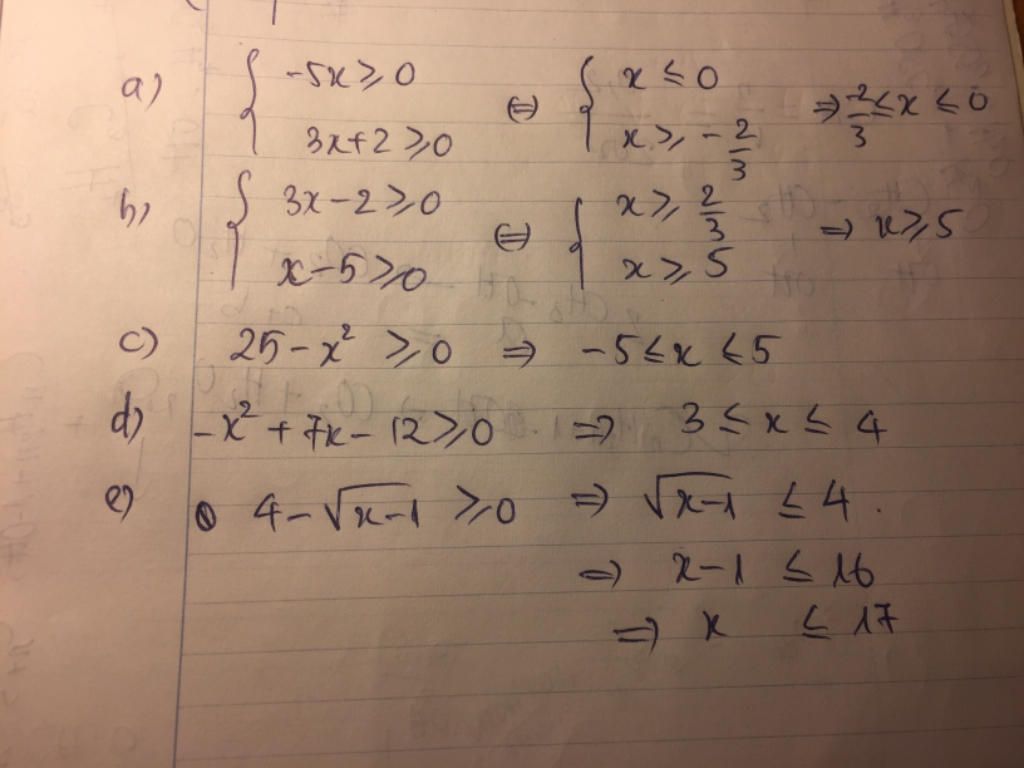 a) { -5x ≥ 0 ⇔ { x ≤ 0 ⇒ -2/3 ≤ x ≤ 0
3x+2 ≥ 0 x ≥ -2/3
b) { 3x-2 ≥ 0 ⇔ { x ≥ 2/3 ⇒ x ≥ 5
x-5 ≥ 0 x ≥ 5
c) 25-x² ≥ 0 ⇒ -5 ≤ x ≤ 5
d) -x² + 7x - 12 ≥ 0 ⇒ 3 ≤ x ≤ 4
e) 4-√(x-1) ≥ 0 ⇒ √(x-1) ≤ 4.
⇒ x-1 ≤ 16
⇒ x ≤ 17